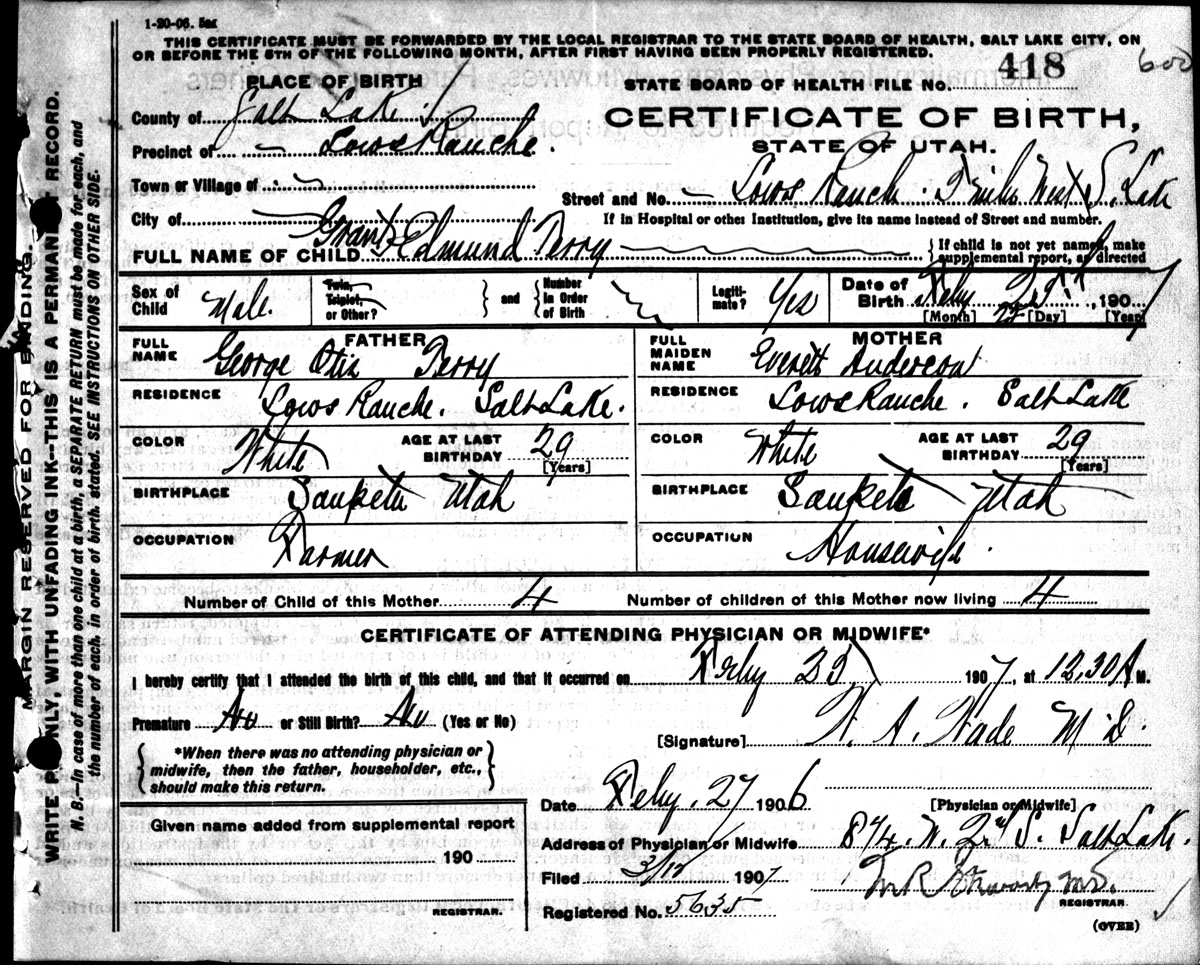 1-20-06. 5m
THIS CERTIFICATE MUST BE FORWARDED BY THE LOCAL REGISTRAR TO THE STATE BOARD OF HEALTH, SALT LAKE CITY, ON
OR BEFORE THE 5TH OF THE FOLLOWING MONTH, AFTER FIRST HAVING BEEN PROPERLY REGISTERED.
600
PLACE OF BIRTH
STATE BOARD OF HEALTH FILE NO. 418
County of Salt Lake
CERTIFICATE OF BIRTH,
Precinct of Lows Ranche.
STATE OF UTAH.
Town or Village of
Street and No. Lows Ranche. 7 miles West S. Lake
City of
If in Hospital or other Institution, give its name instead of Street and number.
FULL NAME OF CHILD Grant Edmund Terry
{ If child is not yet named, make
supplemental report, as directed
Sex of Child Male.
Twin, Triplet, or Other? } and { Number in Order of Birth
Legitimate? Yes
Date of Birth Feby 23rd, 1907
[Month] [Day] [Year]
FATHER
MOTHER
FULL NAME George Otis Terry
FULL MAIDEN NAME Everett Anderson
RESIDENCE Lows Ranche. Salt Lake.
RESIDENCE Lows Ranche. Salt Lake
COLOR White AGE AT LAST BIRTHDAY 29 [Years]
COLOR White AGE AT LAST BIRTHDAY 29 [Years]
BIRTHPLACE Sanpete Utah
BIRTHPLACE Sanpete Utah
OCCUPATION Farmer
OCCUPATION Housewife.
Number of Child of this Mother 4
Number of children of this Mother now living 4
CERTIFICATE OF ATTENDING PHYSICIAN OR MIDWIFE*
I hereby certify that I attended the birth of this child, and that it occurred on Feby 23, 1907, at 12.30 A M.
Premature No or Still Birth? No (Yes or No)
[Signature] A. Wade M D.
{ *When there was no attending physician or
midwife, then the father, householder, etc.,
should make this return. }
Date Feby. 27 1906
[Physician or Midwife]
Given name added from supplemental report
Address of Physician or Midwife 874. W. 2nd S. Salt Lake.
190
Filed 3/12 1907
M R M.D.
REGISTRAR.
REGISTRAR.
Registered No. 5635
(OVER)
MARGIN RESERVED FOR BINDING.
WRITE ONLY, WITH UNFADING INK—THIS IS A PERMANENT RECORD.
N. B.—In case of more than one child at a birth, a SEPARATE RETURN must be made for each, and
the number of each, in order of birth, stated. SEE INSTRUCTIONS ON OTHER SIDE.